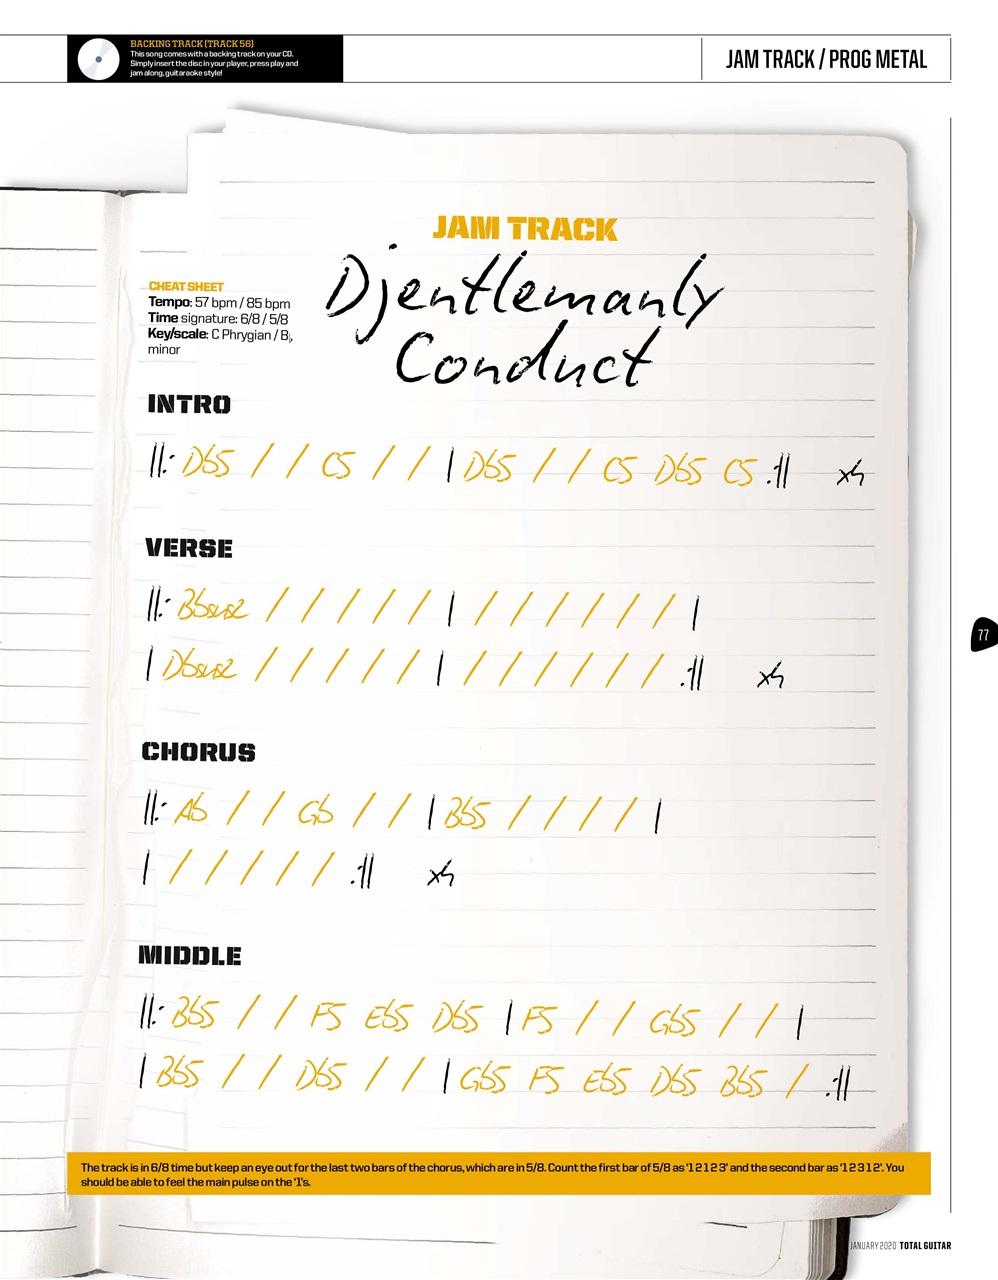 BACKING TRACK (TRACK 56)
This song comes with a backing track on your CD.
Simply insert the disc in your player, press play and
jam along, guitaraoke style!
JAM TRACK / PROG METAL
JAM TRACK
Djentlemanly
Conduct
CHEAT SHEET
Tempo: 57 bpm / 85 bpm
Time signature: 6/8 / 5/8
Key/scale: C Phrygian / B♭
minor
INTRO
||: Db5 / / C5 / / | Db5 / / C5 Db5 C5 :|| x4
VERSE
||: Bbsus2 / / / / / | / / / / / / |
| Dbsus2 / / / / / | / / / / / / :|| x4
CHORUS
||: Ab / / Gb / / | Bb5 / / / / |
| / / / / / :|| x4
MIDDLE
||: Bb5 / / F5 Eb5 Db5 | F5 / / Gb5 / / |
| Bb5 / / Db5 / / | Gb5 F5 Eb5 Db5 Bb5 / :||
77
The track is in 6/8 time but keep an eye out for the last two bars of the chorus, which are in 5/8. Count the first bar of 5/8 as '1 2 1 2 3' and the second bar as '1 2 3 1 2'. You
should be able to feel the main pulse on the '1's.
JANUARY 2020 TOTAL GUITAR